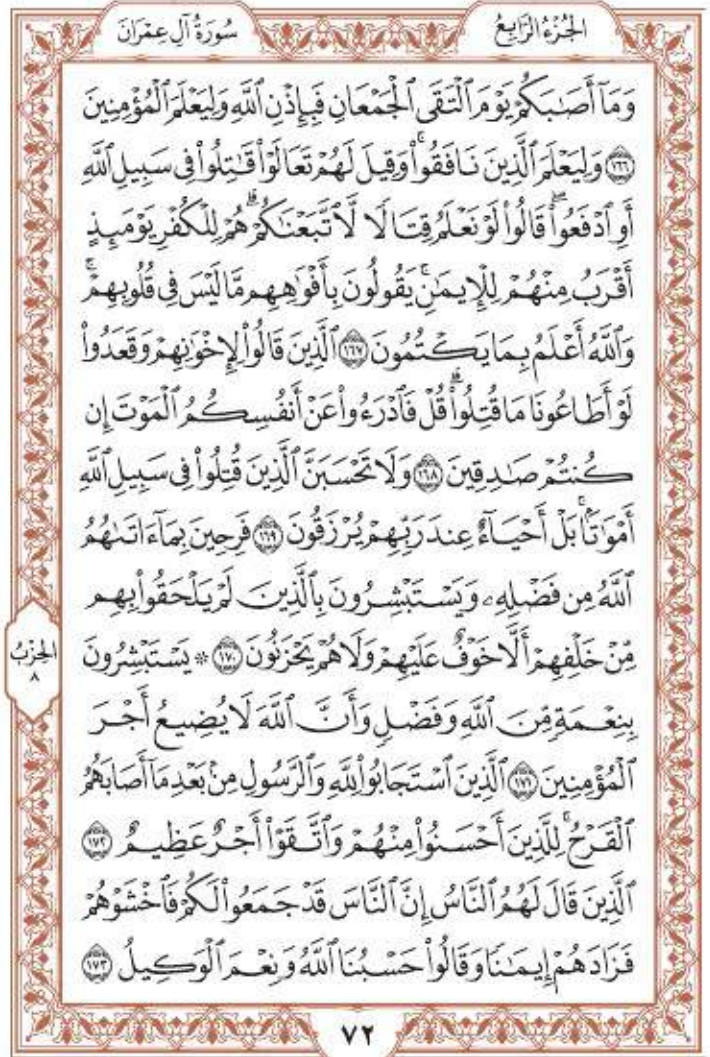 الجُزْءُ الرَّابِعُ
سُورَةُ آلِ عِمْرَانَ
وَمَآ أَصَٰبَكُمْ يَوْمَ ٱلْتَقَى ٱلْجَمْعَانِ فَبِإِذْنِ ٱللَّهِ وَلِيَعْلَمَ ٱلْمُؤْمِنِينَ
١٦٦ وَلِيَعْلَمَ ٱلَّذِينَ نَافَقُوا۟ۚ وَقِيلَ لَهُمْ تَعَالَوْا۟ قَٰتِلُوا۟ فِى سَبِيلِ ٱللَّهِ
أَوِ ٱدْفَعُوا۟ۖ قَالُوا۟ لَوْ نَعْلَمُ قِتَالًا لَّٱتَّبَعْنَٰكُمْۗ هُمْ لِلْكُفْرِ يَوْمَئِذٍ
أَقْرَبُ مِنْهُمْ لِلْإِيمَٰنِۚ يَقُولُونَ بِأَفْوَٰهِهِم مَّا لَيْسَ فِى قُلُوبِهِمْۚ
وَٱللَّهُ أَعْلَمُ بِمَا يَكْتُمُونَ ١٦٧ ٱلَّذِينَ قَالُوا۟ لِإِخْوَٰنِهِمْ وَقَعَدُوا۟
لَوْ أَطَاعُونَا مَا قُتِلُوا۟ۗ قُلْ فَٱدْرَءُوا۟ عَنْ أَنفُسِكُمُ ٱلْمَوْتَ إِن
كُنتُمْ صَٰدِقِينَ ١٦٨ وَلَا تَحْسَبَنَّ ٱلَّذِينَ قُتِلُوا۟ فِى سَبِيلِ ٱللَّهِ
أَمْوَٰتًۢاۚ بَلْ أَحْيَآءٌ عِندَ رَبِّهِمْ يُرْزَقُونَ ١٦٩ فَرِحِينَ بِمَآ ءَاتَىٰهُمُ
ٱللَّهُ مِن فَضْلِهِۦ وَيَسْتَبْشِرُونَ بِٱلَّذِينَ لَمْ يَلْحَقُوا۟ بِهِم
مِّنْ خَلْفِهِمْ أَلَّا خَوْفٌ عَلَيْهِمْ وَلَا هُمْ يَحْزَنُونَ ١٧٠ ۞ يَسْتَبْشِرُونَ
بِنِعْمَةٍ مِّنَ ٱللَّهِ وَفَضْلٍ وَأَنَّ ٱللَّهَ لَا يُضِيعُ أَجْرَ
ٱلْمُؤْمِنِينَ ١٧١ ٱلَّذِينَ ٱسْتَجَابُوا۟ لِلَّهِ وَٱلرَّسُولِ مِنۢ بَعْدِ مَآ أَصَابَهُمُ
ٱلْقَرْحُۚ لِلَّذِينَ أَحْسَنُوا۟ مِنْهُمْ وَٱتَّقَوْا۟ أَجْرٌ عَظِيمٌ ١٧٢
ٱلَّذِينَ قَالَ لَهُمُ ٱلنَّاسُ إِنَّ ٱلنَّاسَ قَدْ جَمَعُوا۟ لَكُمْ فَٱخْشَوْهُمْ
فَزَادَهُمْ إِيمَٰنًا وَقَالُوا۟ حَسْبُنَا ٱللَّهُ وَنِعْمَ ٱلْوَكِيلُ ١٧٣
الحِزْبُ
٨
٧٢